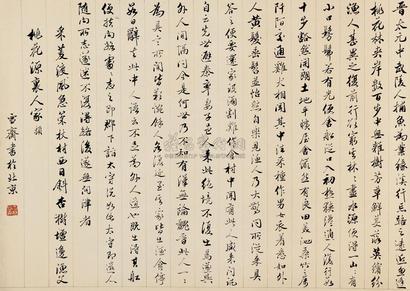 晉太元中武陵人捕魚為業緣溪行忘路之遠近逢
桃花林夾岸數百步中無雜樹芳草鮮美落英繽紛
漁人甚異之復前行欲窮其林林盡水源便得一山山有
小口髣髴若有光便舍船從口入初極狹才通人復行數
十步豁然開朗土地平曠屋舍儼然有良田美池桑竹之屬
阡陌交通雞犬相聞其中往來種作男女衣著悉如外
人黃髮垂髫並怡然自樂見漁人乃大驚問所從來具
答之便要還家設酒殺雞作食村中聞有此人咸來問訊
自云先世避秦時亂率妻子邑人來此絕境不復出焉遂與
外人間隔問今是何世乃不知有漢無論魏晉此人一一
為具言所聞皆歎惋餘人各復延至其家皆出酒食停
數日辭去此中人語云不足為外人道也既出得其船
便扶向路處處志之及郡下詣太守說如此太守即遣人
隨向所志遂迷不復得路後遂無問津者
采菱渡風急策杖村西日斜杏樹壇邊漁父
桃花源裏人家 頭
雪齋書於北京